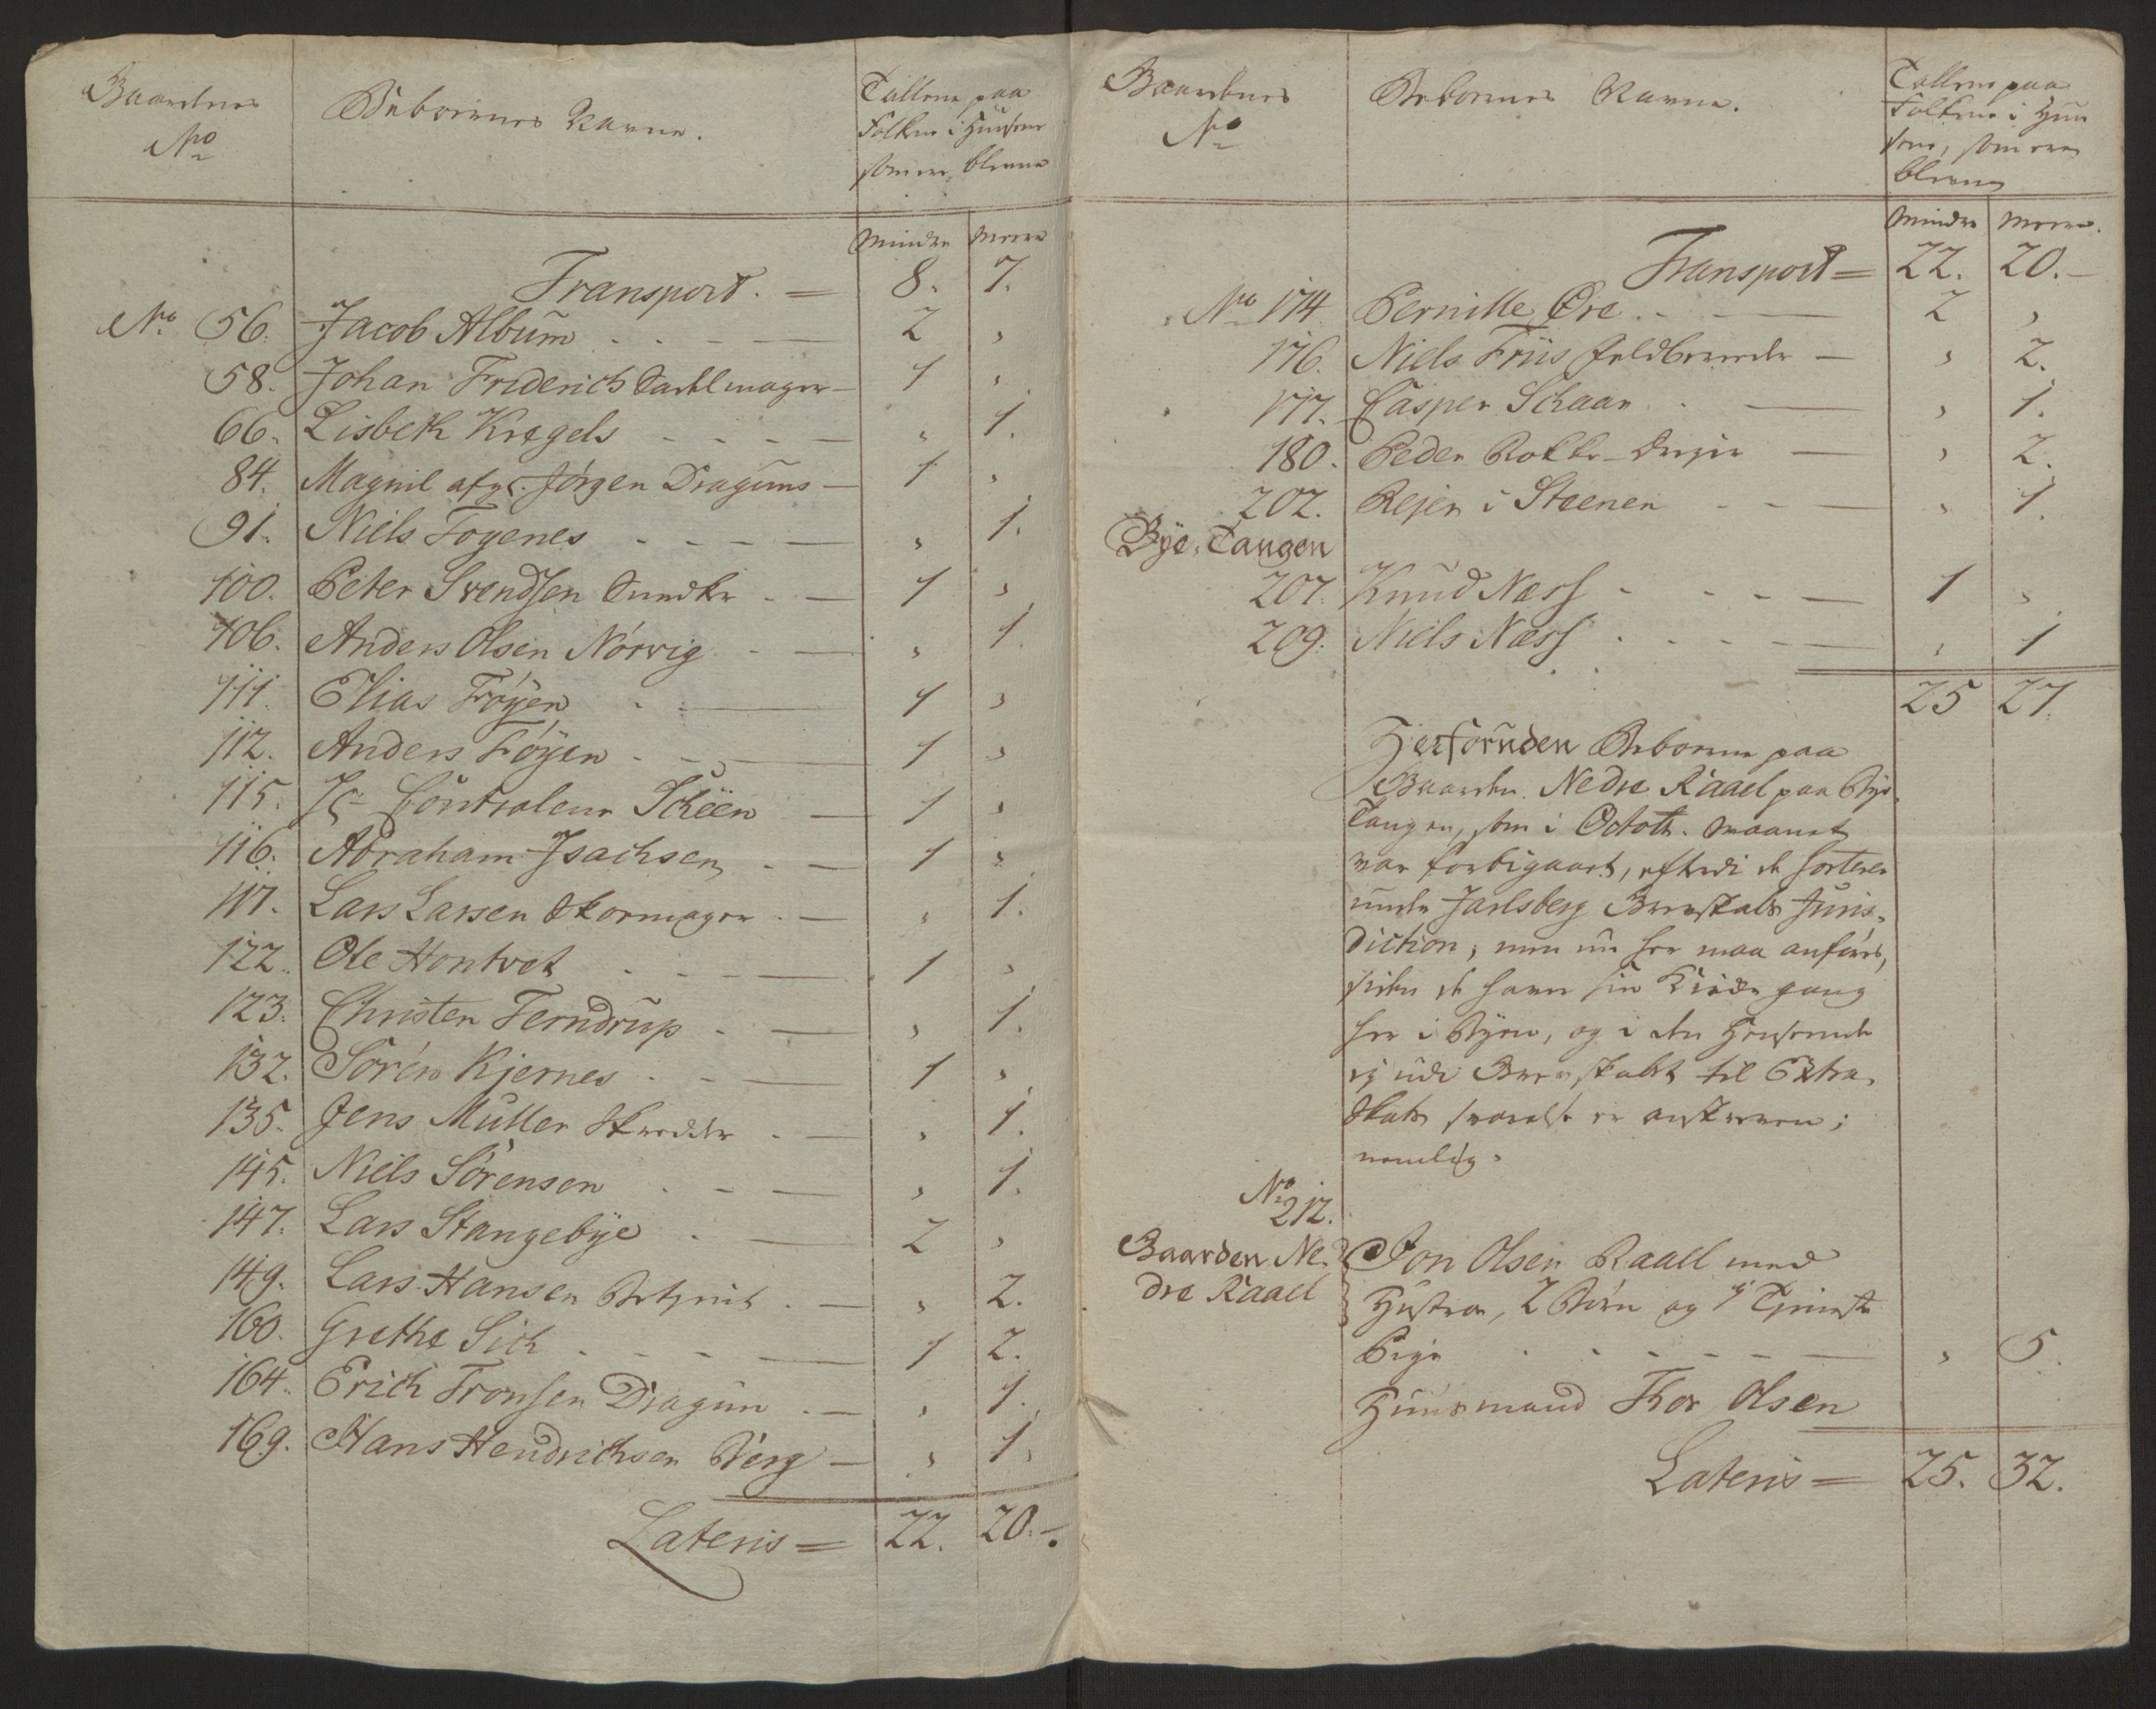 Gaardenes
No
Beboernes Navne.
Tallene paa
Folkene i Huusene
som ere blevne
Mindre Meere
Transport. = 8. 7.
No 56. Jacob Album . . . — 2 "
58. Johan Friderich Sadelmager — 1 "
66. Lisbeth Kregels . . . — " 1.
84. Magnil afg. Jörgen Draguns — 1 "
91. Niels Foyenes . . . — " 1.
100. Peter Svendsen Snedker . — 1 "
106. Anders Olsen Nörvig . — " 1.
111. Elias Föyen . . — 1 "
112. Anders Föyen . . — 1 "
115. Hr Controleur Scheen — 1 "
116. Abraham Isachsen . — 1 "
117. Lars Larsen Skoemager . — " 1.
122. Ole Hontvet . . . — 1 "
123. Christen Ferndrup . — " 1.
132. Sören Kjernes . . — 1 "
135. Jens Müller Skredder . — " 1.
145. Niels Sörensen . . — " 1.
147. Lars Stangebye . — 2 "
149. Lars Hansen . — " 2.
160. Grethe Sich . . . — 1 2.
164. Erich Fronsen Dragun . — " 1.
169. Hans Hendrichsen Berg — " 1.
Lateris = 22. 20.
Gaardenes
No
Beboernes Navne.
Tallene paa
Folkene i Huu
sene, som ere
blevne
Mindre Meere.
Transport = 22. 20.
No 174 Pernille Öre . . — 2 "
176. Niels Friis Feldbereder — " 2.
177. Casper Schaar . — " 1.
180. Peder Rokke-Dreyer — " 2.
202. Rejer i Steenen . . — " 1.
Bye-Tangen
207. Knud Næss . . . — 1 "
209. Niels Næss . . . — " 1
25 27.
Herforuden Beboerne paa
Gaarden Nedre Raael paa Bye-
Tangen, som i Octobr. Maanet
var forbigaaet, efterdi de sorterer
under Jarlsberg Grevskabs Juris-
diction, men nu her maa anföres,
siden de haver sin Kirkegang
her i Byen, og i den Henseende
ej udi Grevskabet til Extra
Skats svarelse er anskreven;
nemlig.
No
212.
Gaarden Ne-
dre Raael
Jon Olsen Raael med
Hustroe, 2 Börn og 1 Tjeneste
Pige . . . . — " 5.
Huusmand Thor Olsen
Lateris = 25. 32.